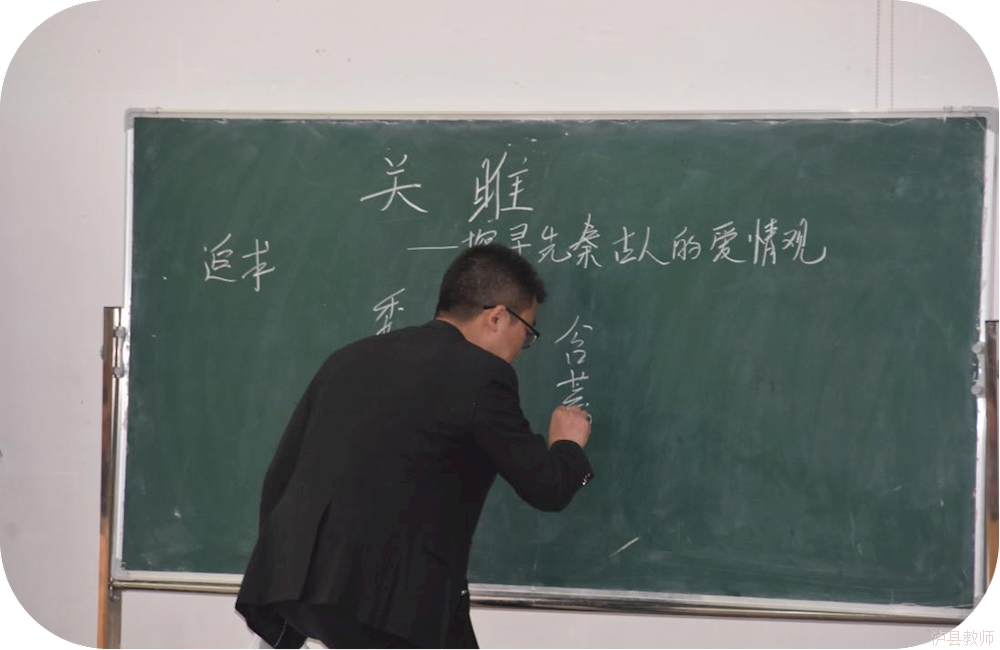 关雎
——探寻先秦古人的爱情观
追求
委
含蓄
泸县教师